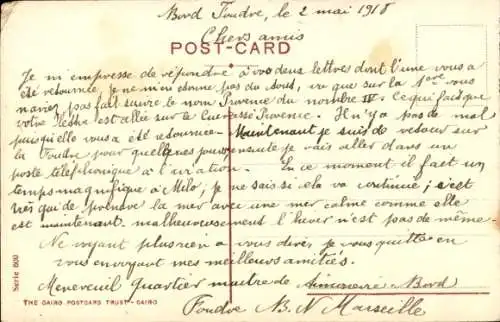 Bord Foudre, le 2 mai 1918
Chers amis
POST-CARD
Je m'empresse de répondre à vos deux lettres dont l'une vous a
été retournée, je ne m'en étonne pas du tout, vu que sur la 1ère vous
n'aviez pas fait suivre le nom Provence du nombre IV. Ce qui fait que
votre lettre est allée sur le Cuirassé Provence. Il n'y a pas de mal
puisqu'elle vous a été retournée - Maintenant je suis de retour sur
la Foudre pour quelques jours, ensuite je vais aller dans un
poste téléphonique à l'aviation. En ce moment il fait un
temps magnifique à Milo, je ne sais si cela va continuer, c'est
très gai de prendre la mer avec une mer calme comme elle
est maintenant. malheureusement l'hiver n'est pas de même -
Ne voyant plus rien à vous dire, je vous quitte en
vous envoyant mes meilleurs amitiés.
Menereuil Quartier maître de timonerie Bord
Foudre B. N Marseille
Serie 600
THE CAIRO POSTCARD TRUST-CAIRO